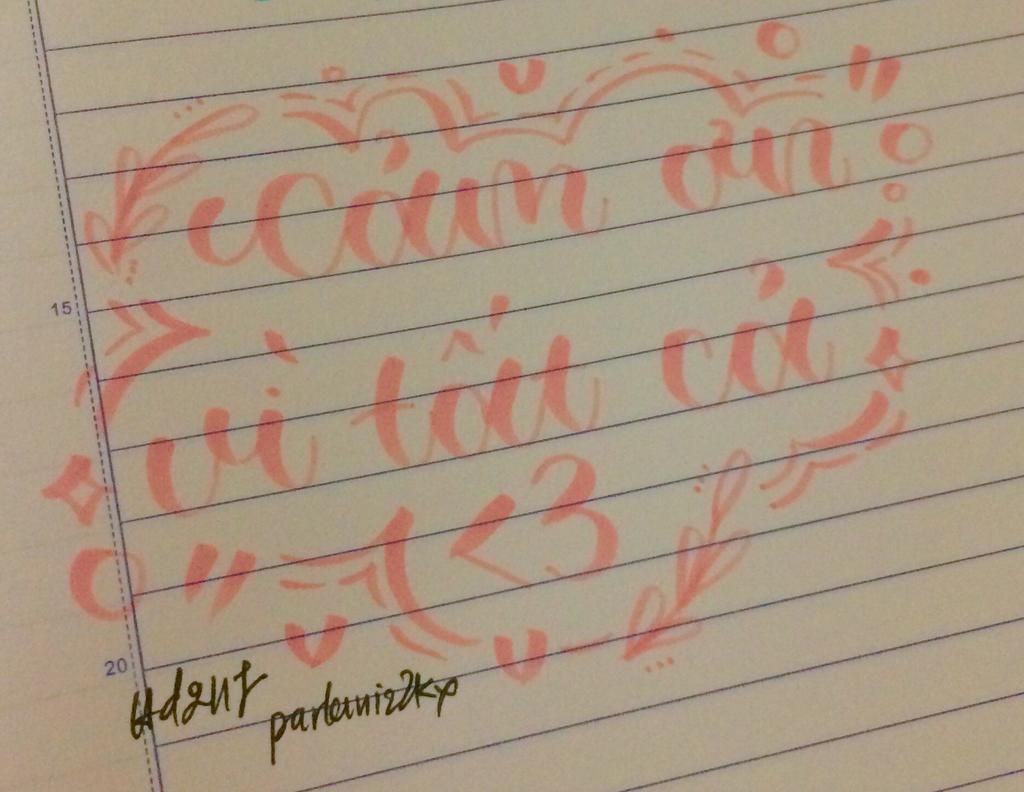 15
20
"Cảm ơn"
vì tất cả
<3